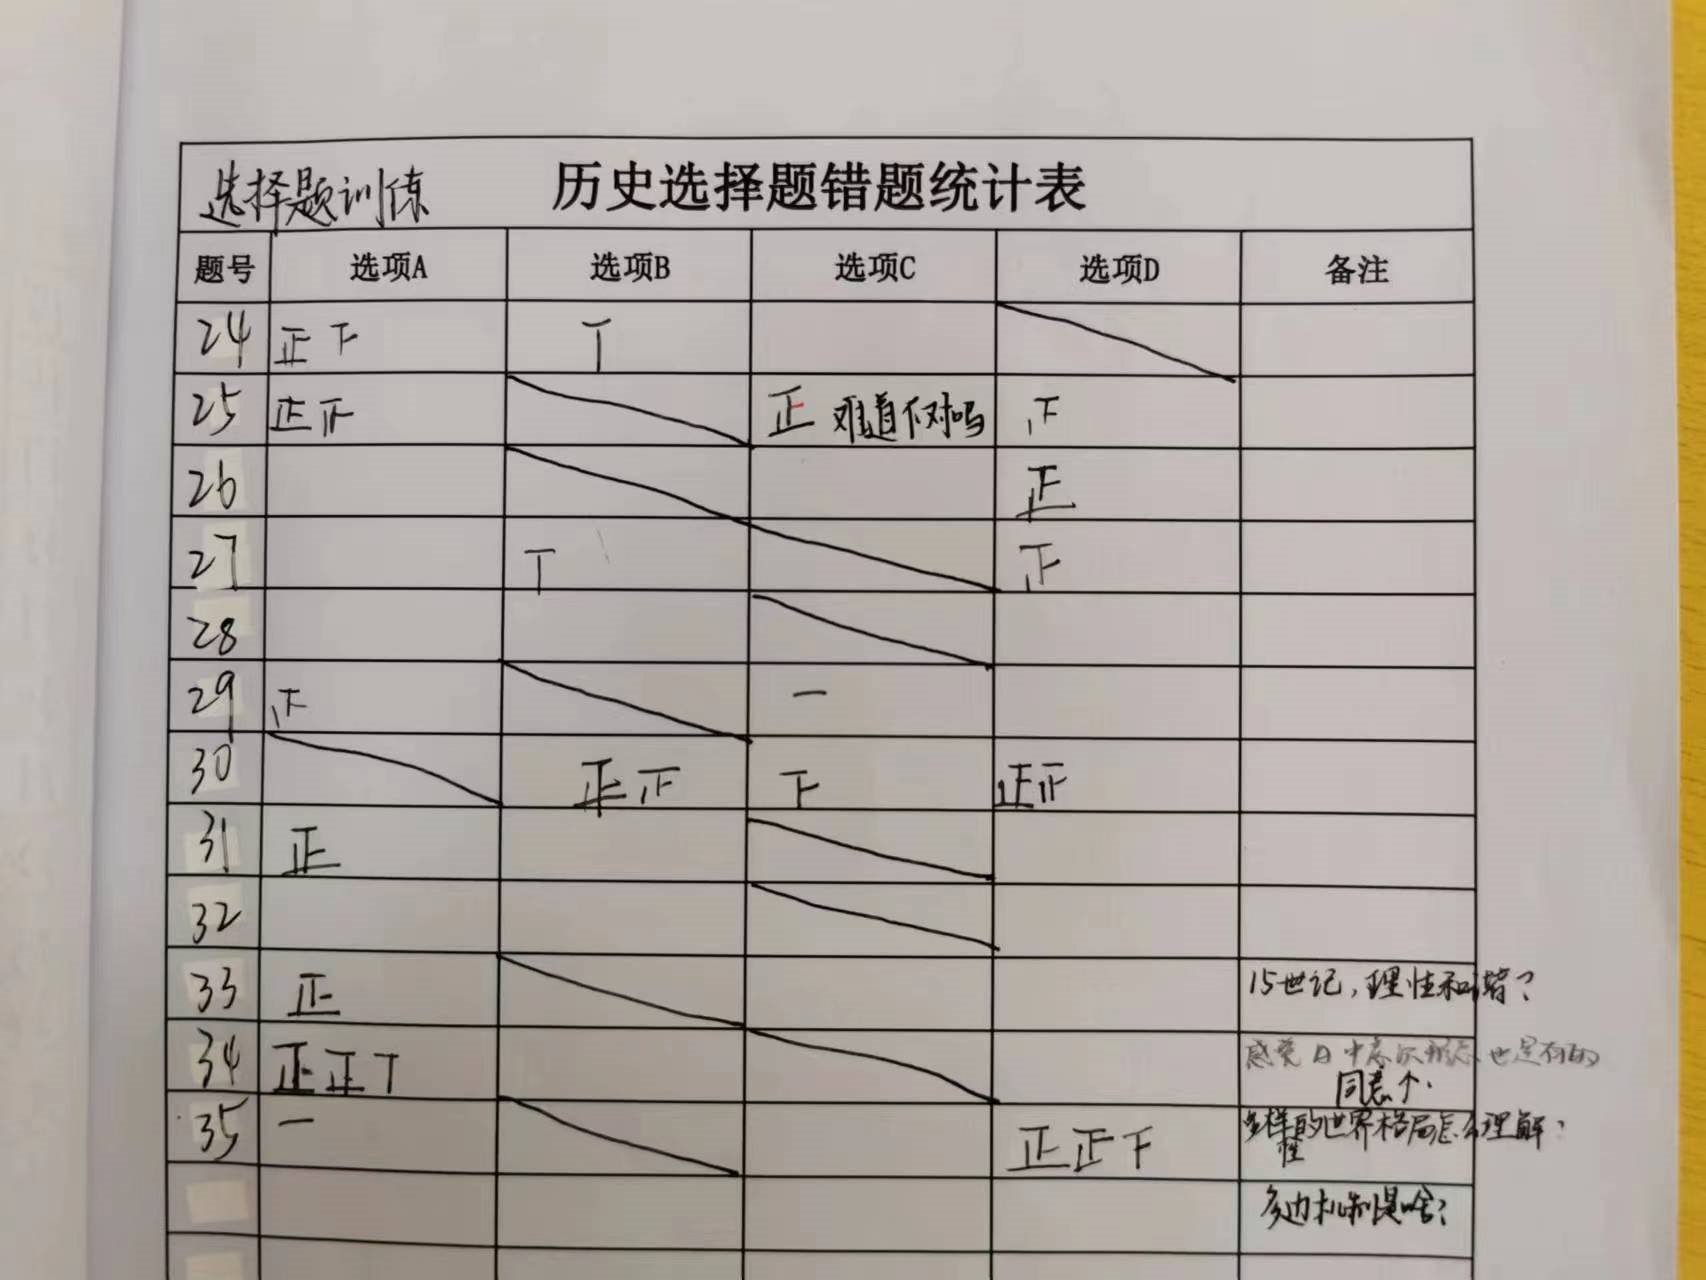 选择题训练 历史选择题错题统计表
题号 选项A 选项B 选项C 选项D 备注
24 正下 丅
25 正正 正 难道不对吗 正
26 正
27 丅 正
28
29 正 一
30 正正 下 正正
31 正
32
33 正 15世纪，理性和谐？
34 正正丅 感觉 也是有的
同意个.
35 一 正正下 多样的世界格局怎么理解？
性
多边机制是啥？